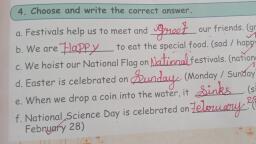 4. Choose and write the correct answer.
a. Festivals help us to meet and greet our friends. (gr
b. We are Happy to eat the special food. (sad / happ
c. We hoist our National Flag on National festivals. (nation
d. Easter is celebrated on Sunday. (Monday / Sunday
e. When we drop a coin into the water, it Sinks (si
f. National Science Day is celebrated on February 28
February 28)